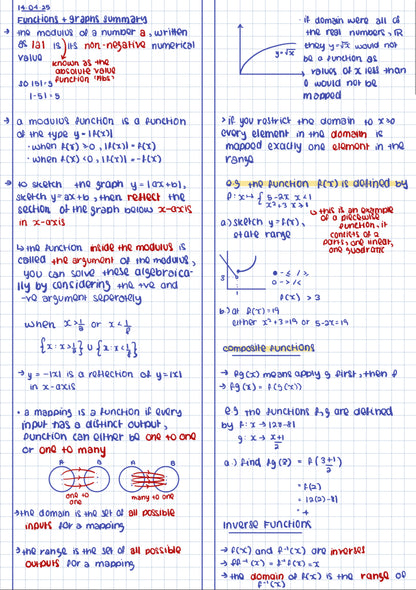 14.04.25
Functions + graphs summary
→ the modulus of a number a, written
as |a| is its non-negative numerical
value
known as the
absolute value
function 'Abs'
so |5|=5
|-5|=5
→ a modulus function is a function
of the type y=|f(x)|
· when f(x) >0, |f(x)|=f(x)
· when f(x) <0, |f(x)|=-f(x)
→ to sketch the graph y=|ax+b|,
sketch y=ax+b, then reflect the
section of the graph below x-axis
in x-axis
↳ the function inside the modulus is
called the argument of the modulus,
you can solve these algebraica-
lly by considering the +ve and
-ve argument seperately
→ y=-|x| is a reflection of y=|x|
in x-axis
• a mapping is a function if every
input has a distinct output,
function can either be one to one
or one to many
A B A B
one to
one
many to one
→ the domain is the set of all possible
inputs for a mapping
→ the range is the set of all possible
outputs for a mapping
y=√x
· if domain were all of
the real numbers, ℝ
they y=√x would not
be a function as
values of x less than
0 would not be
mapped
→ if you restrict the domain to x≥0
every element in the domain is
mapped exactly one element in the
range
e.g the function f(x) is defined by
f: x→ { 5-2x x<1
x²+3 x≥1
↳ this is an example
of a piecewise
function, it
consists of 2
parts, one linear,
one quadratic
a.) sketch y=f(x),
state range
3
1
f(x) > 3
b.) at f(x)=19
either x²+3=19 or 5-2x=19
composite functions
→ fg(x) means apply g first, then f
→ fg(x) = f(g(x))
e.g the functions f,g are defined
a.) find fg(2) = f(3+1/2)
= f(2)
Inverse functions
→ f(x) and f⁻¹(x) are inverses
→ ff⁻¹(x) = f⁻¹f(x)=x
→ the domain of f(x) is the range of
f⁻¹(x)